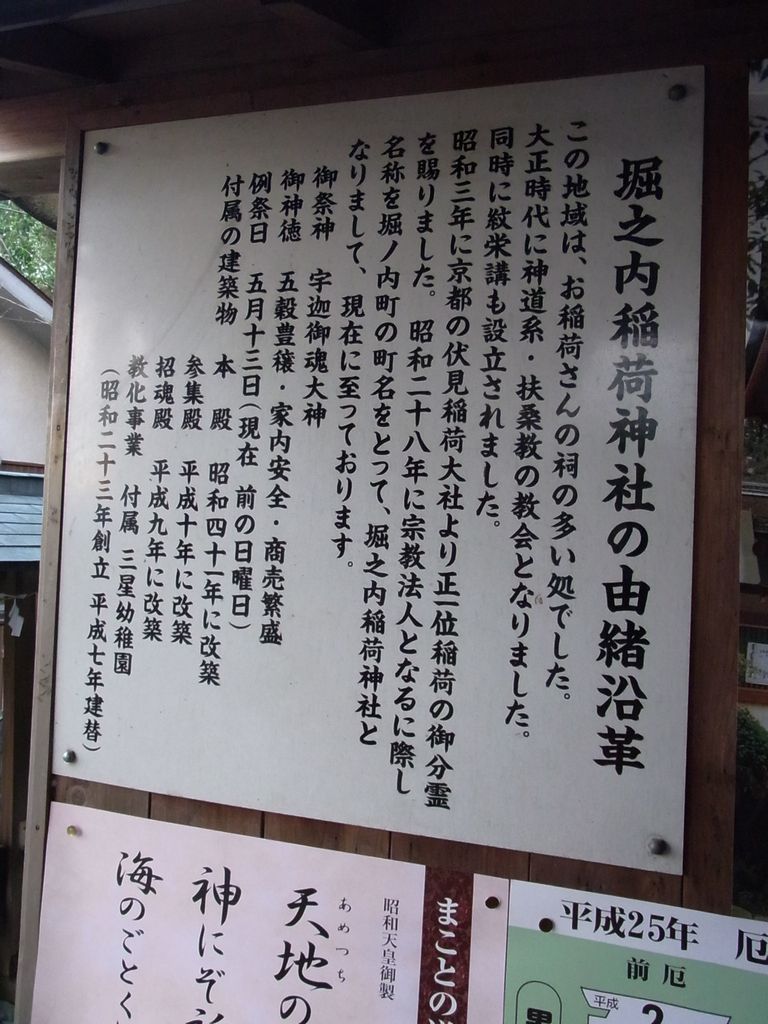 堀之内稲荷神社の由緒沿革
この地域は、お稲荷さんの祠の多い処でした。
大正時代に神道系・扶桑教の教会となりました。
同時に紋栄講も設立されました。
昭和三年に京都の伏見稲荷大社より正一位稲荷の御分霊
を賜りました。昭和二十八年に宗教法人となるに際し
名称を堀ノ内町の町名をとって、堀之内稲荷神社と
なりまして、現在に至っております。
御祭神 宇迦御魂大神
御神徳 五穀豊穣・家内安全・商売繁盛
例祭日 五月十三日(現在 前の日曜日)
付属の建築物 本殿 昭和四十一年に改築
参集殿 平成十年に改築
招魂殿 平成九年に改築
教化事業 付属 三星幼稚園
(昭和二十三年創立 平成七年建替)
平成25年 厄
前厄
平成
2
まことの
昭和天皇御製
あめつち
天地の
神にぞ
海のごとく